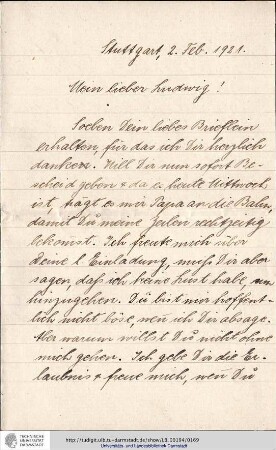 Stuttgart, 2. Feb. 1921.
Mein lieber Ludwig!
Soeben Dein liebes Brieflein
erhalten, für das ich Dir herzlich
danken. Will Dir nun sofort Be-
scheid geben & da es heute Mittwoch
ist, trägt es mir Papa an die Bahn,
damit Du meine Zeilen rechtzeitig
bekomst. Ich freute mich über
Deine l. Einladung, muß Dir aber
sagen, daß ich keine Lust habe,
hinzugehen. Du bist mir hoffent-
lich nicht böse, wen ich Dir absage.
Aber warum willst Du nicht ohne
mich gehen. Ich gebe Dir die Er-
laubnis & freue mich, wen Du
http://tudigit.ulb.tu-darmstadt.de/show/LB_10194/0169
Universitäts- und Landesbibliothek Darmstadt